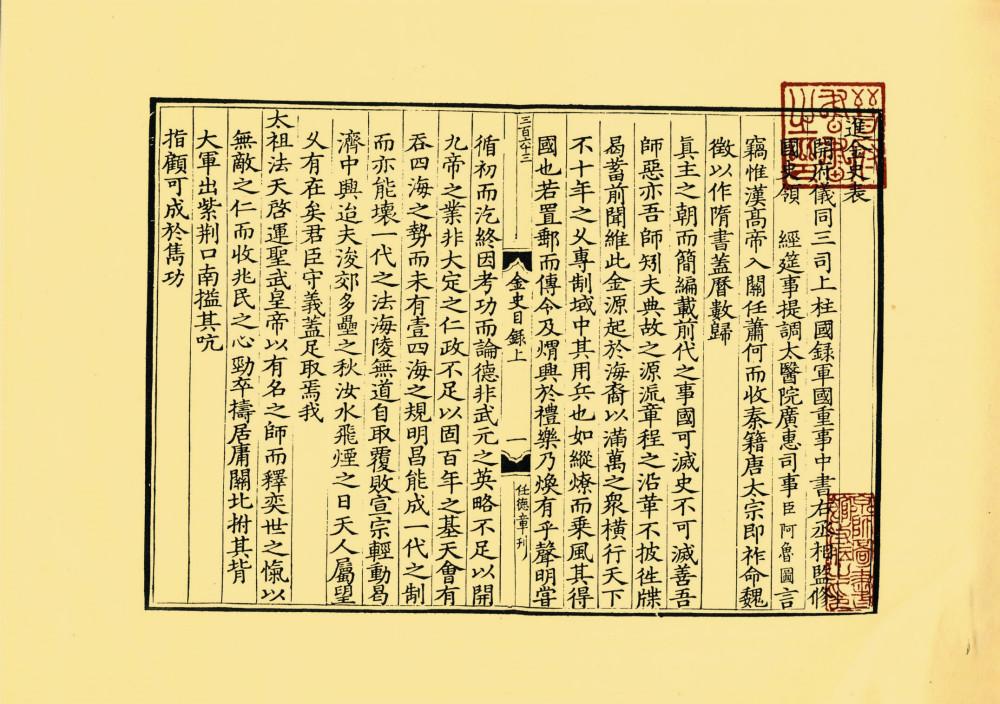 進金史表
開府儀同三司上柱國録軍國重事中書右丞相監修
國史領　經筵事提調太醫院廣惠司事臣阿魯圖言
竊惟漢髙帝入關任蕭何而收秦籍唐太宗即祚命魏
徵以作隋書蓋曆數歸
真主之朝而簡編載前代之事國可滅史不可滅善吾
師惡亦吾師矧夫典故之源流章程之沿革不披徃牒
曷蓄前聞維此金源起於海裔以滿萬之衆橫行天下
不十年之乆專制域中其用兵也如縱燎而乗風其得
國也若置郵而傳令及煟興於禮樂乃煥有乎聲明嘗
三百六十三
金史目録上
一
任徳章刊
循初而汔終因考功而論德非武元之英略不足以開
九帝之業非大定之仁政不足以固百年之基天會有
吞四海之勢而未有壹四海之規明昌能成一代之制
而亦能壞一代之法海陵無道自取覆敗宣宗輕動曷
濟中興迨夫浚郊多壘之秋汝水飛煙之日天人屬望
乆有在矣君臣守義蓋足取焉我
太祖法天啓運聖武皇帝以有名之師而釋奕世之愾以
無敵之仁而收兆民之心勁卒擣居庸關北拊其背
大軍出紫荆口南搤其吭
指顧可成於雋功